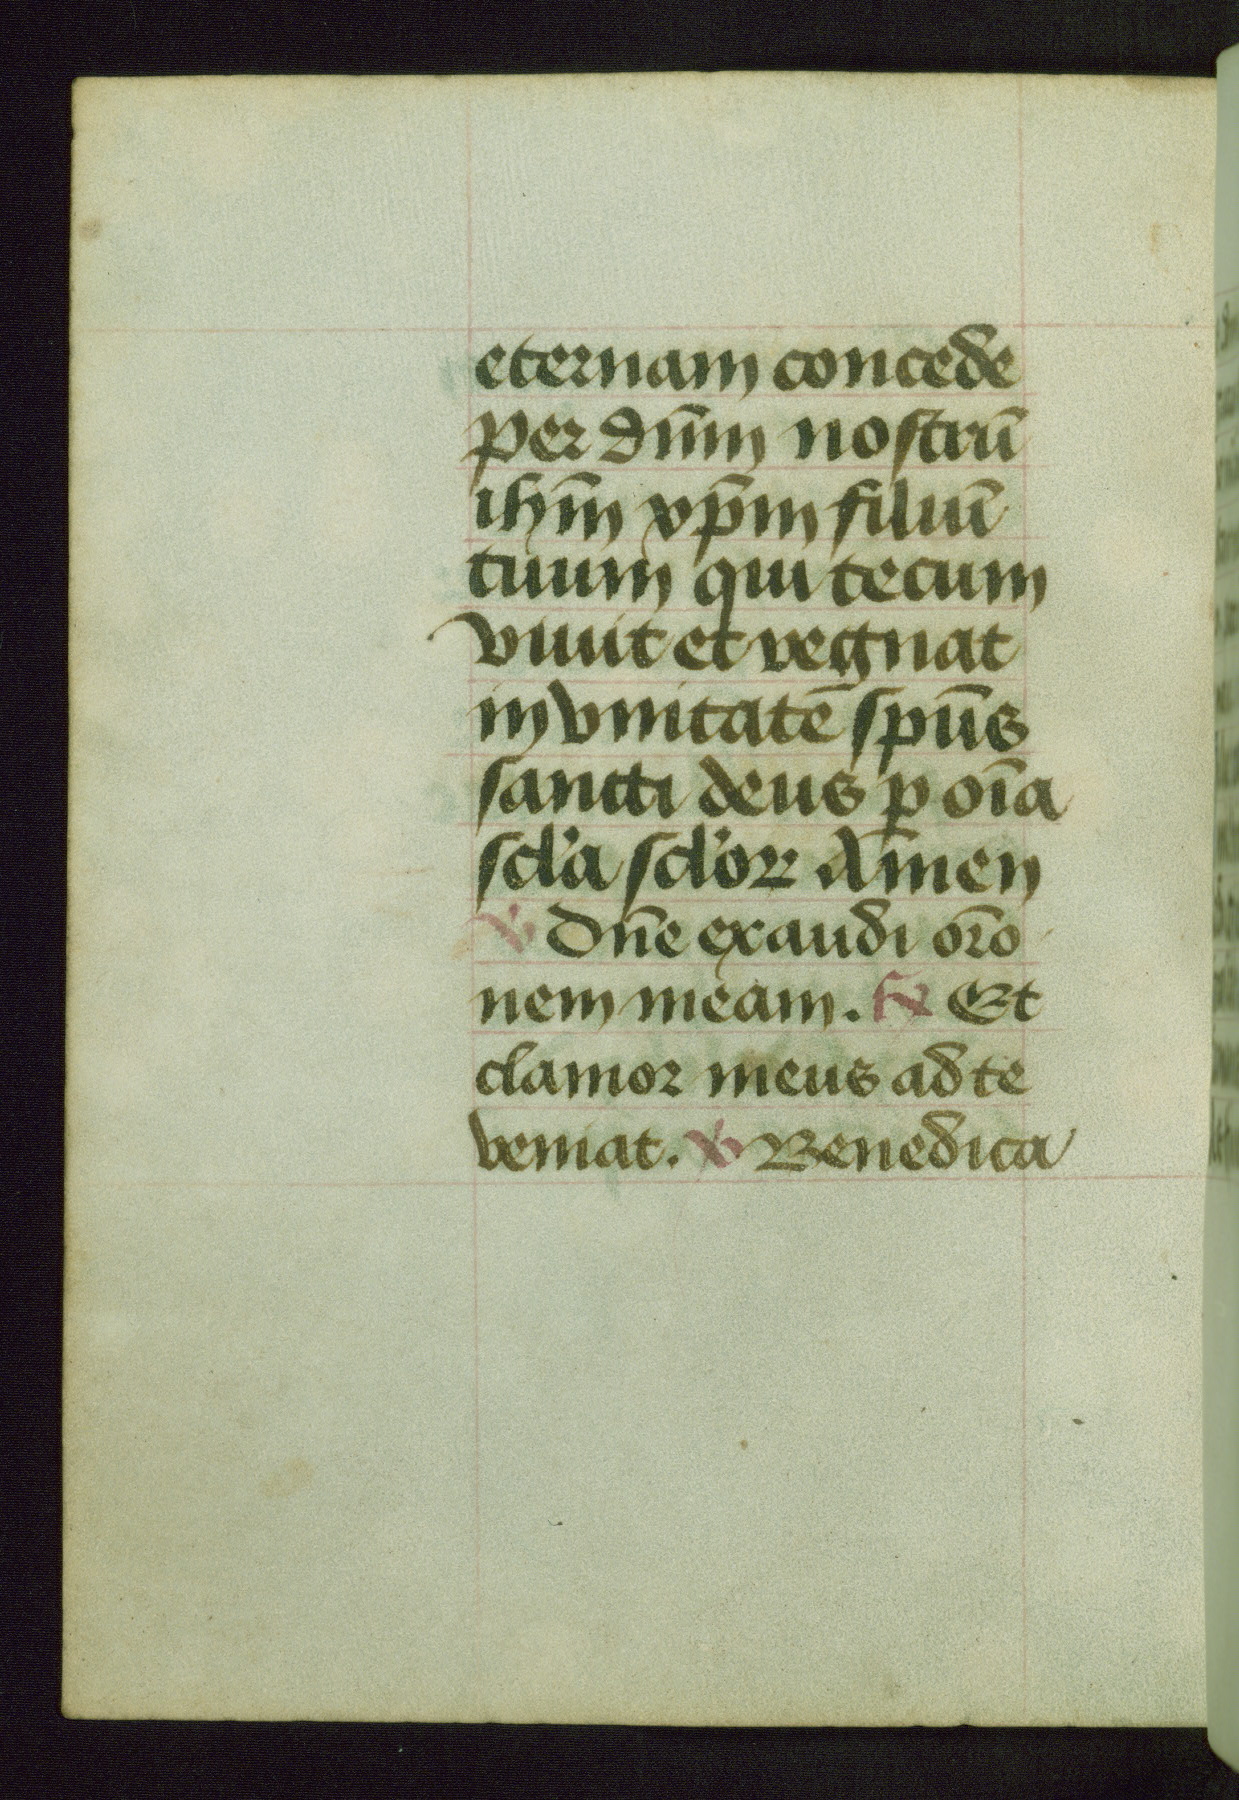 eternam concede
per dn̄m nostrū
ihm̄ xp̄m filiuū
tuum qui tecum
viuit et regnat
in vnitatē spūs
sancti deus p oīa
scl'a scl'oꝝ Am̄en
℣ Dn̄e exaudi or̄o
nem meam. ℟ Et
clamor meus ad te
veniat. ℣ Benedica